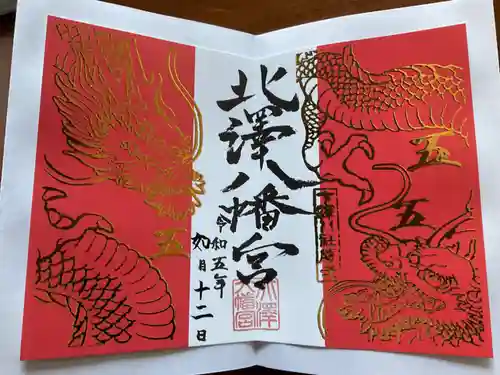 北澤八幡宮
令和五年
如月十二日
五
五
五
北澤
八幡宮